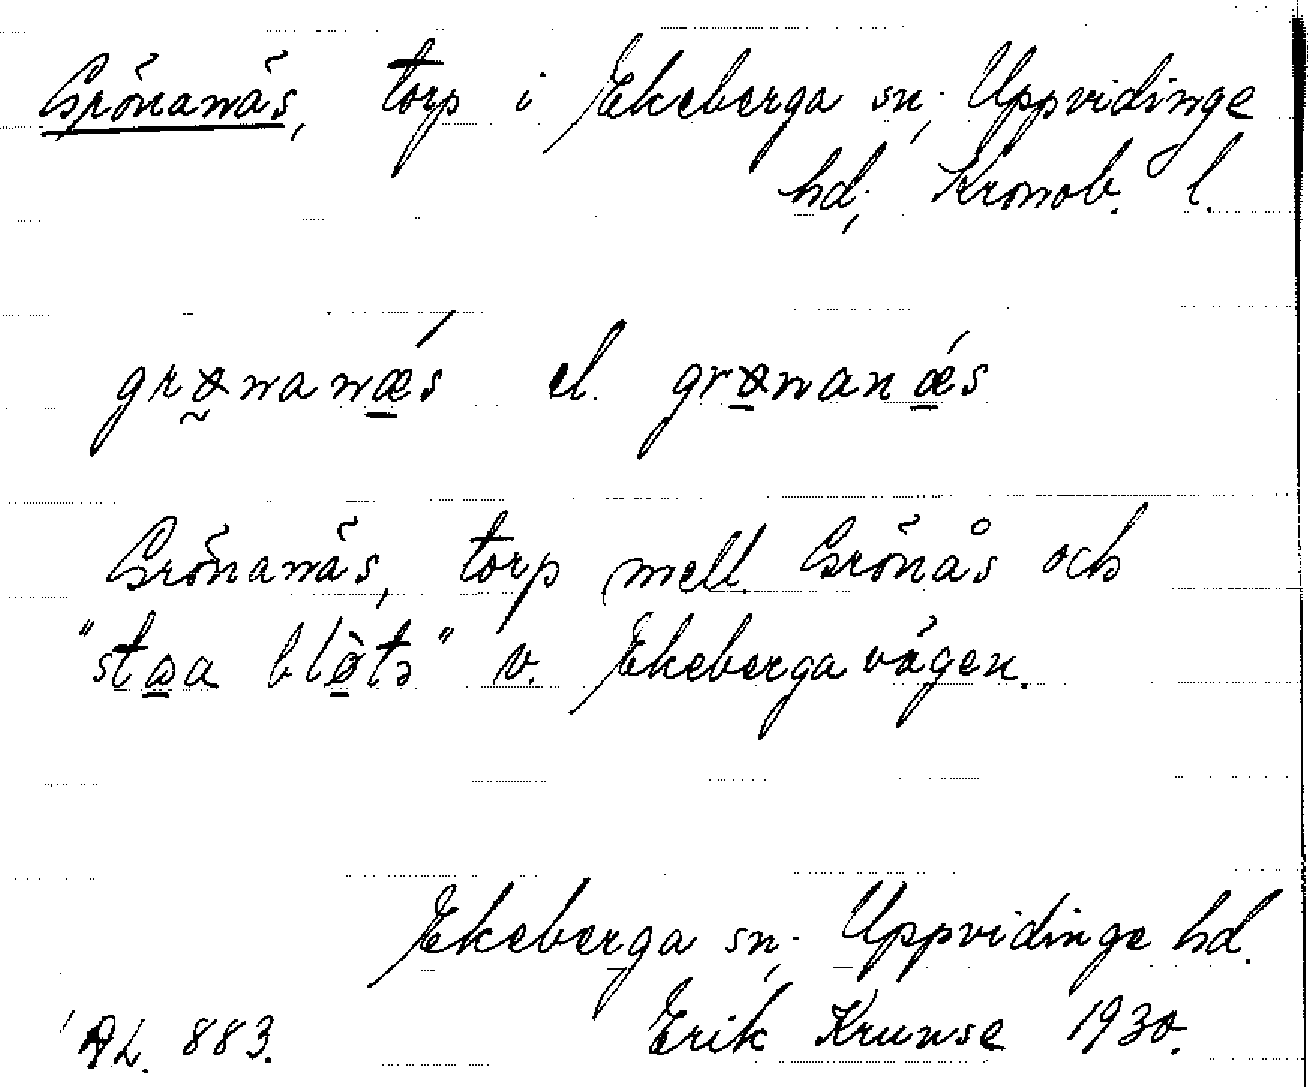 Grönanäs, torp i Ekeberga sn, Uppvidinge
hd, Kronob. l.
grø̰nanǽ̱s el. grø̱nanǽ̱s
Grönanäs, torp mell. Grönås och
"sta̱a blø̱̀tə" v. Ekebergavägen.
Ekeberga sn, Uppvidinge hd.
AL. 883. Erik Krunse 1930.